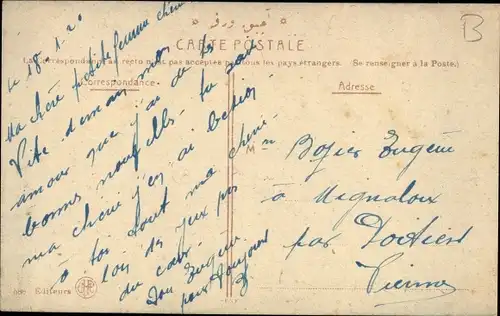 B
CARTE POSTALE
La correspondance au recto n'est pas acceptée par tous les pays étrangers. Se renseigner à la Poste.)
Correspondance
Adresse
le 18. 1. 20
Ma chère petite femme chérie
Vite demain mon
amour que j'ai de tes
bonnes nouvelles
ma chérie j'en ai besoin
à toi tout ma chérie
loin des yeux près
du cœur.
Ton Eugène
pour toujours
M
Eugène
à Mignaloux
par Poitiers
Vienne
Editeurs